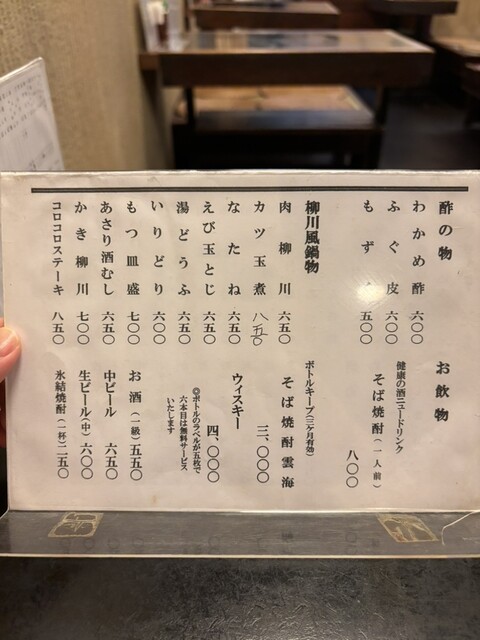 酢の物
わかめ酢 六〇〇
ふぐ皮 六〇〇
もずく 五〇〇
柳川風鍋物
肉柳川 六五〇
カツ玉煮 八五〇
なたね 六五〇
えび玉とじ 六五〇
湯どうふ 六五〇
いりどり 六〇〇
もつ皿盛 七〇〇
あさり酒むし 八五〇
かき柳川 七〇〇
コロコロステーキ 八五〇
お飲物
健康の酒ニュードリンク
そば焼酎(一人前)
八〇〇
ボトルキープ(三ヶ月有効)
そば焼酎雲海
三、〇〇〇
ウィスキー
四、〇〇〇
◎ボトルのラベルが五枚で
六本目は無料サービス
いたします
お酒(一級)五五〇
中ビール 六五〇
生ビール(中)六〇〇
氷結焼酎(一杯)二五〇